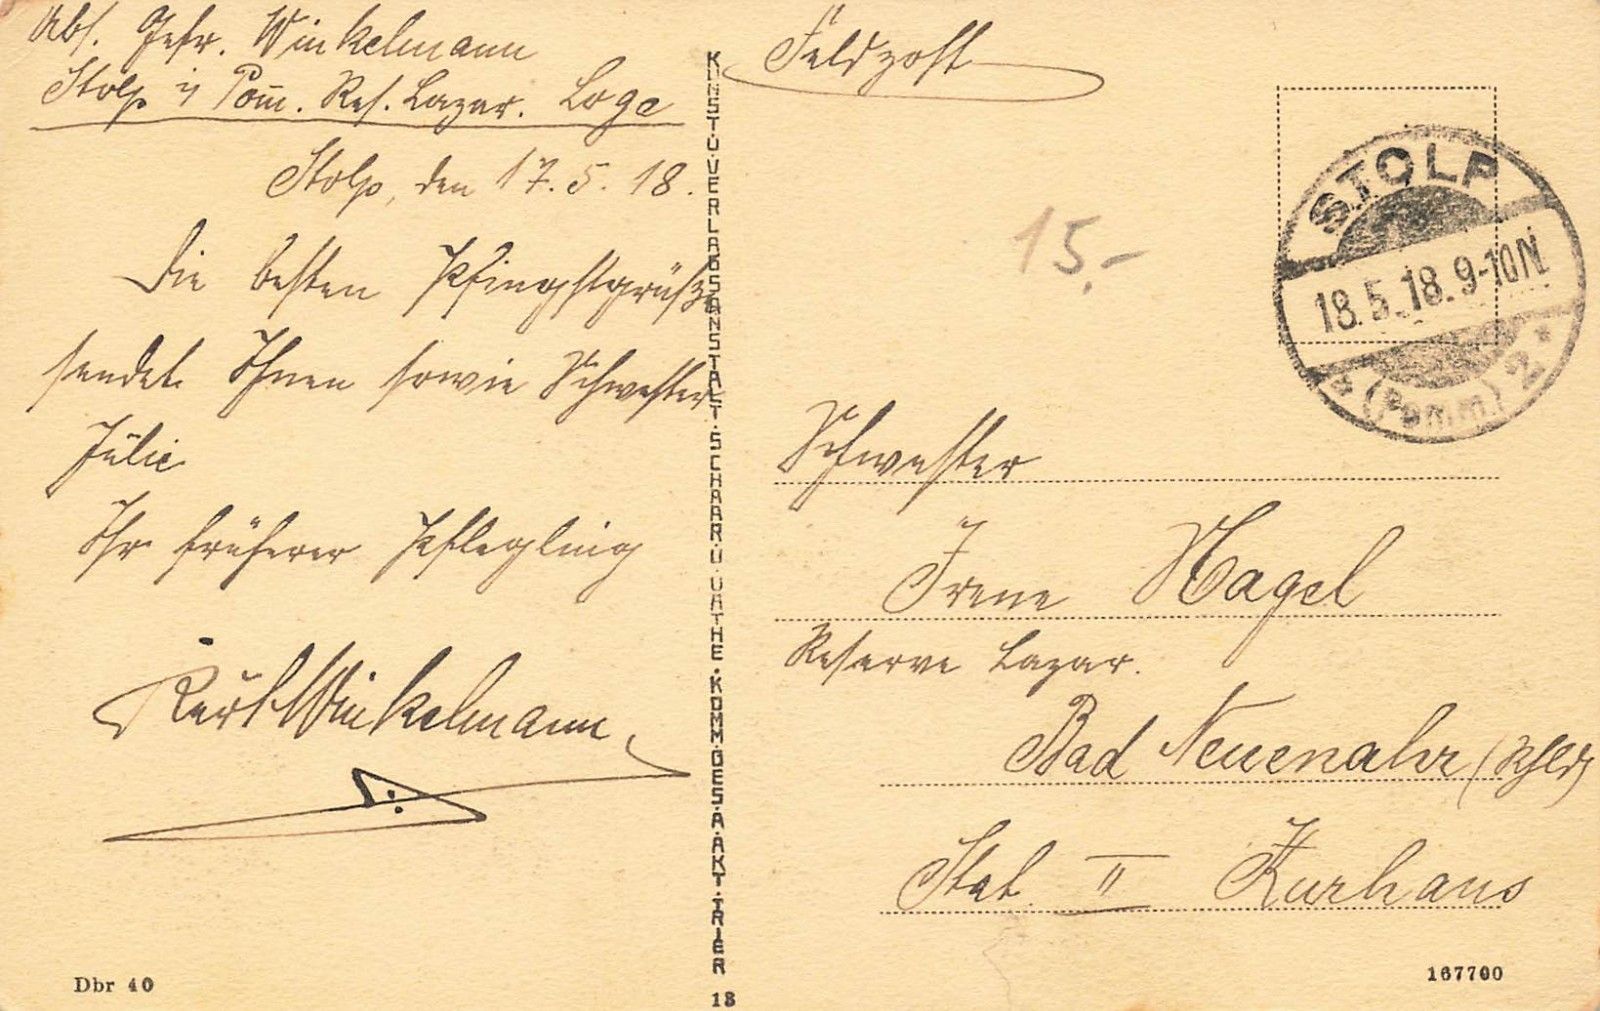 Abs. Gefr. Winkelmann
Stolp i/ Pom. Res. Lazar. Loge
Stolp, den 17.5.18.
Die besten Pfingstgrüße
sendet Ihnen sowie Schwester
Julie
Ihr früherer Pflegling
Kurt Winkelmann
Dbr 40
KUNST.U.VERLAGSANSTALT.SCHAAR.U.DATHE.KOMM.GES.A.AKT.TRIER
18
Feldpost
15.-
STOLP
18.5.18.9-10N
* (Pomm.) 2 *
Schwester
Irene Nagel
Reserve Lazar.
Bad Neuenahr (Rhld)
Stat. II Kurhaus
167700